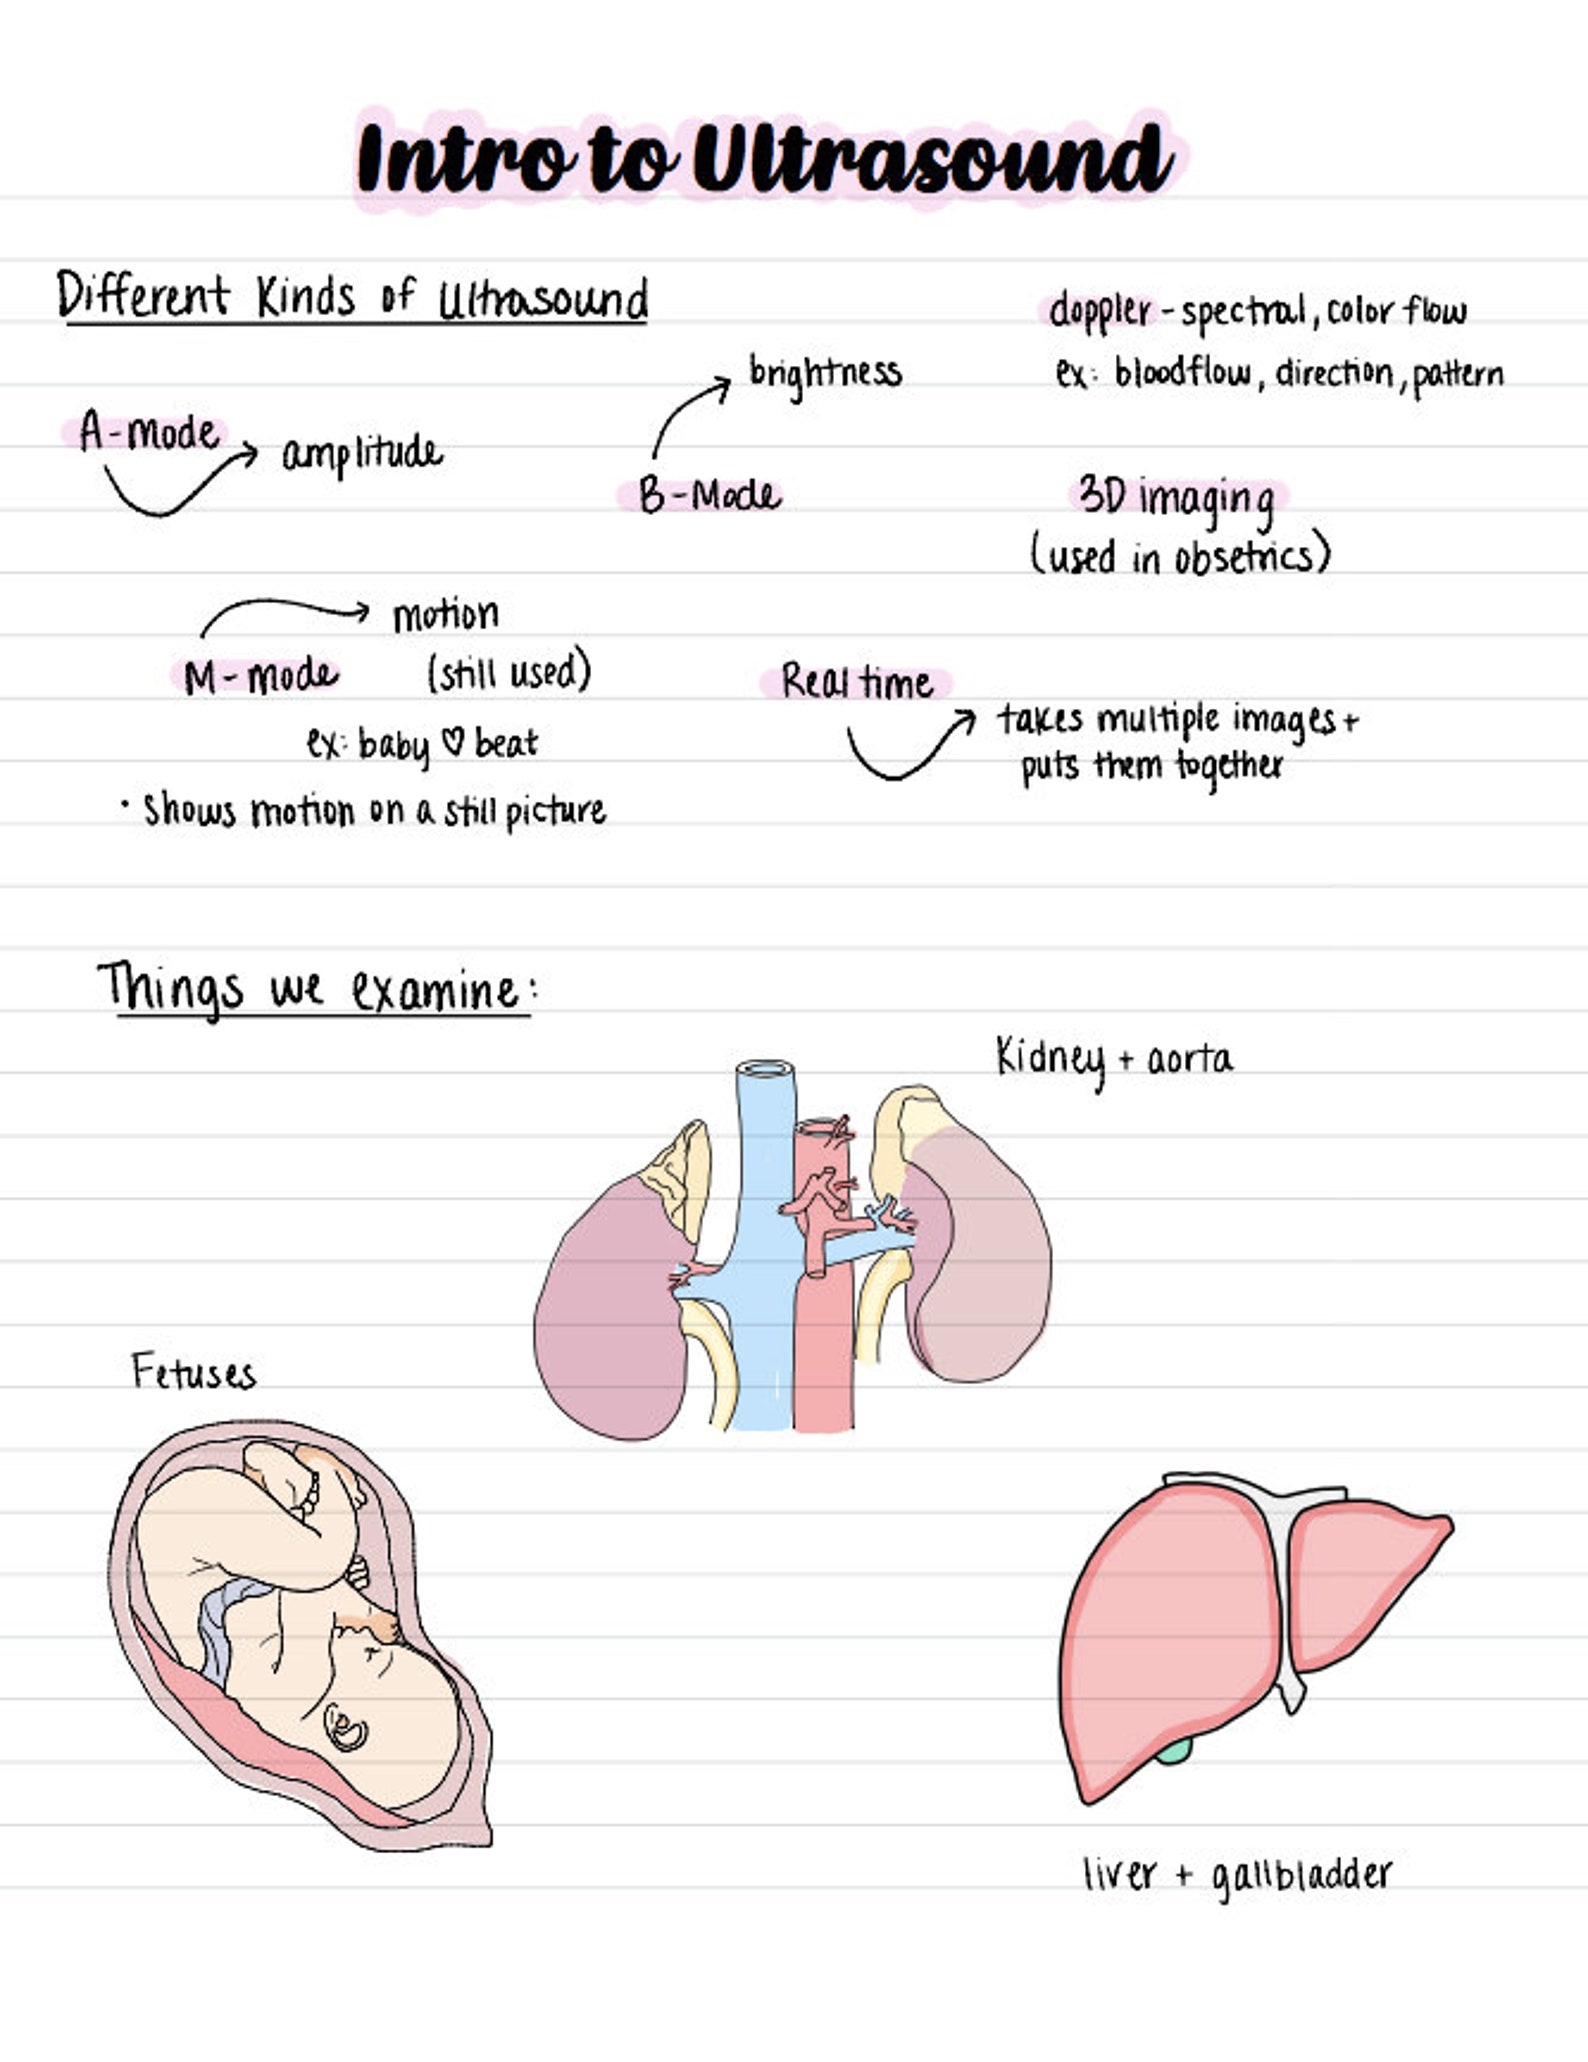 Intro to Ultrasound
Different Kinds of Ultrasound
doppler - spectral, color flow
ex: bloodflow, direction, pattern
brightness
A-mode
amplitude
B-Mode
3D imaging
(used in obsetrics)
motion
M-mode (still used)
ex: baby ♡ beat
• Shows motion on a still picture
Real time
takes multiple images +
puts them together
Things we examine:
Kidney + aorta
Fetuses
liver + gallbladder